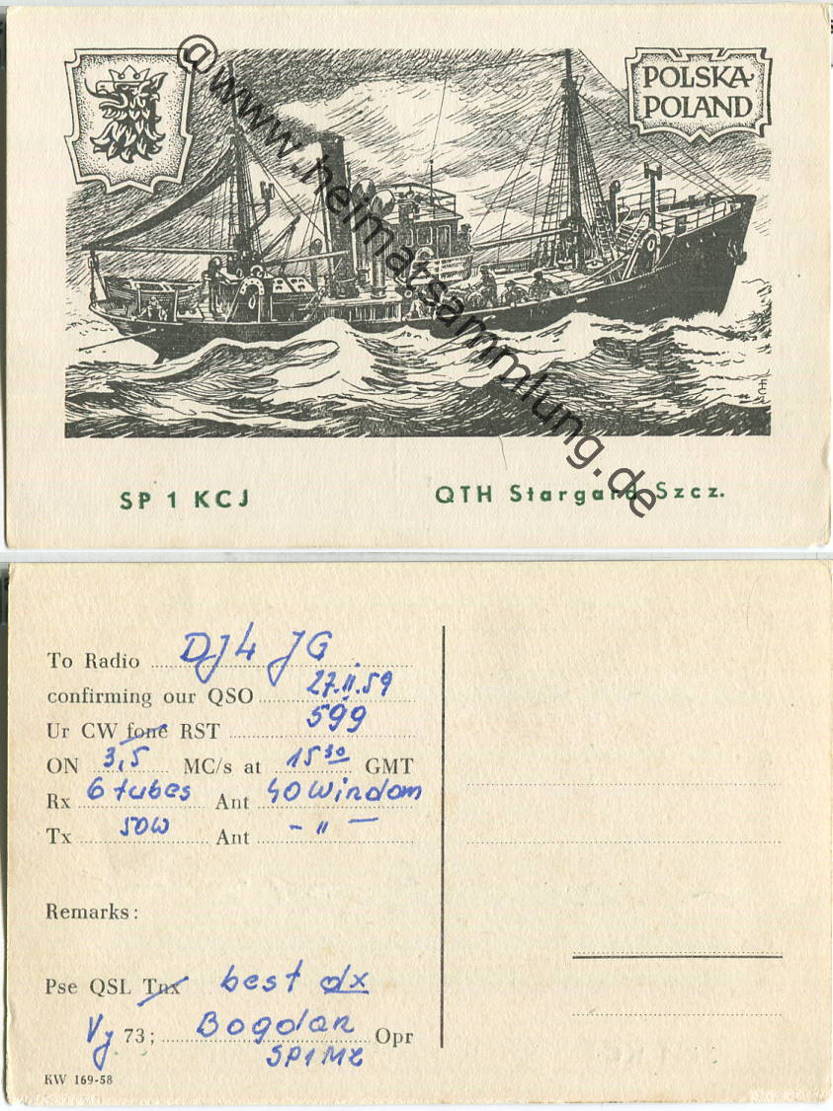 POLSKA-
POLAND
@www.heimatsammlung.de
SP 1 KCJ
QTH Stargard Szcz.
To Radio DJ4 JG
confirming our QSO 27.11.59
Ur CW fone RST 599
ON 3,5 MC/s at 15 30 GMT
Rx 6 tubes Ant 40 windom
Tx 50W Ant - " -
Remarks:
Pse QSL Tnx best dx
Vy 73; Bogdan Opr
KW 169-58